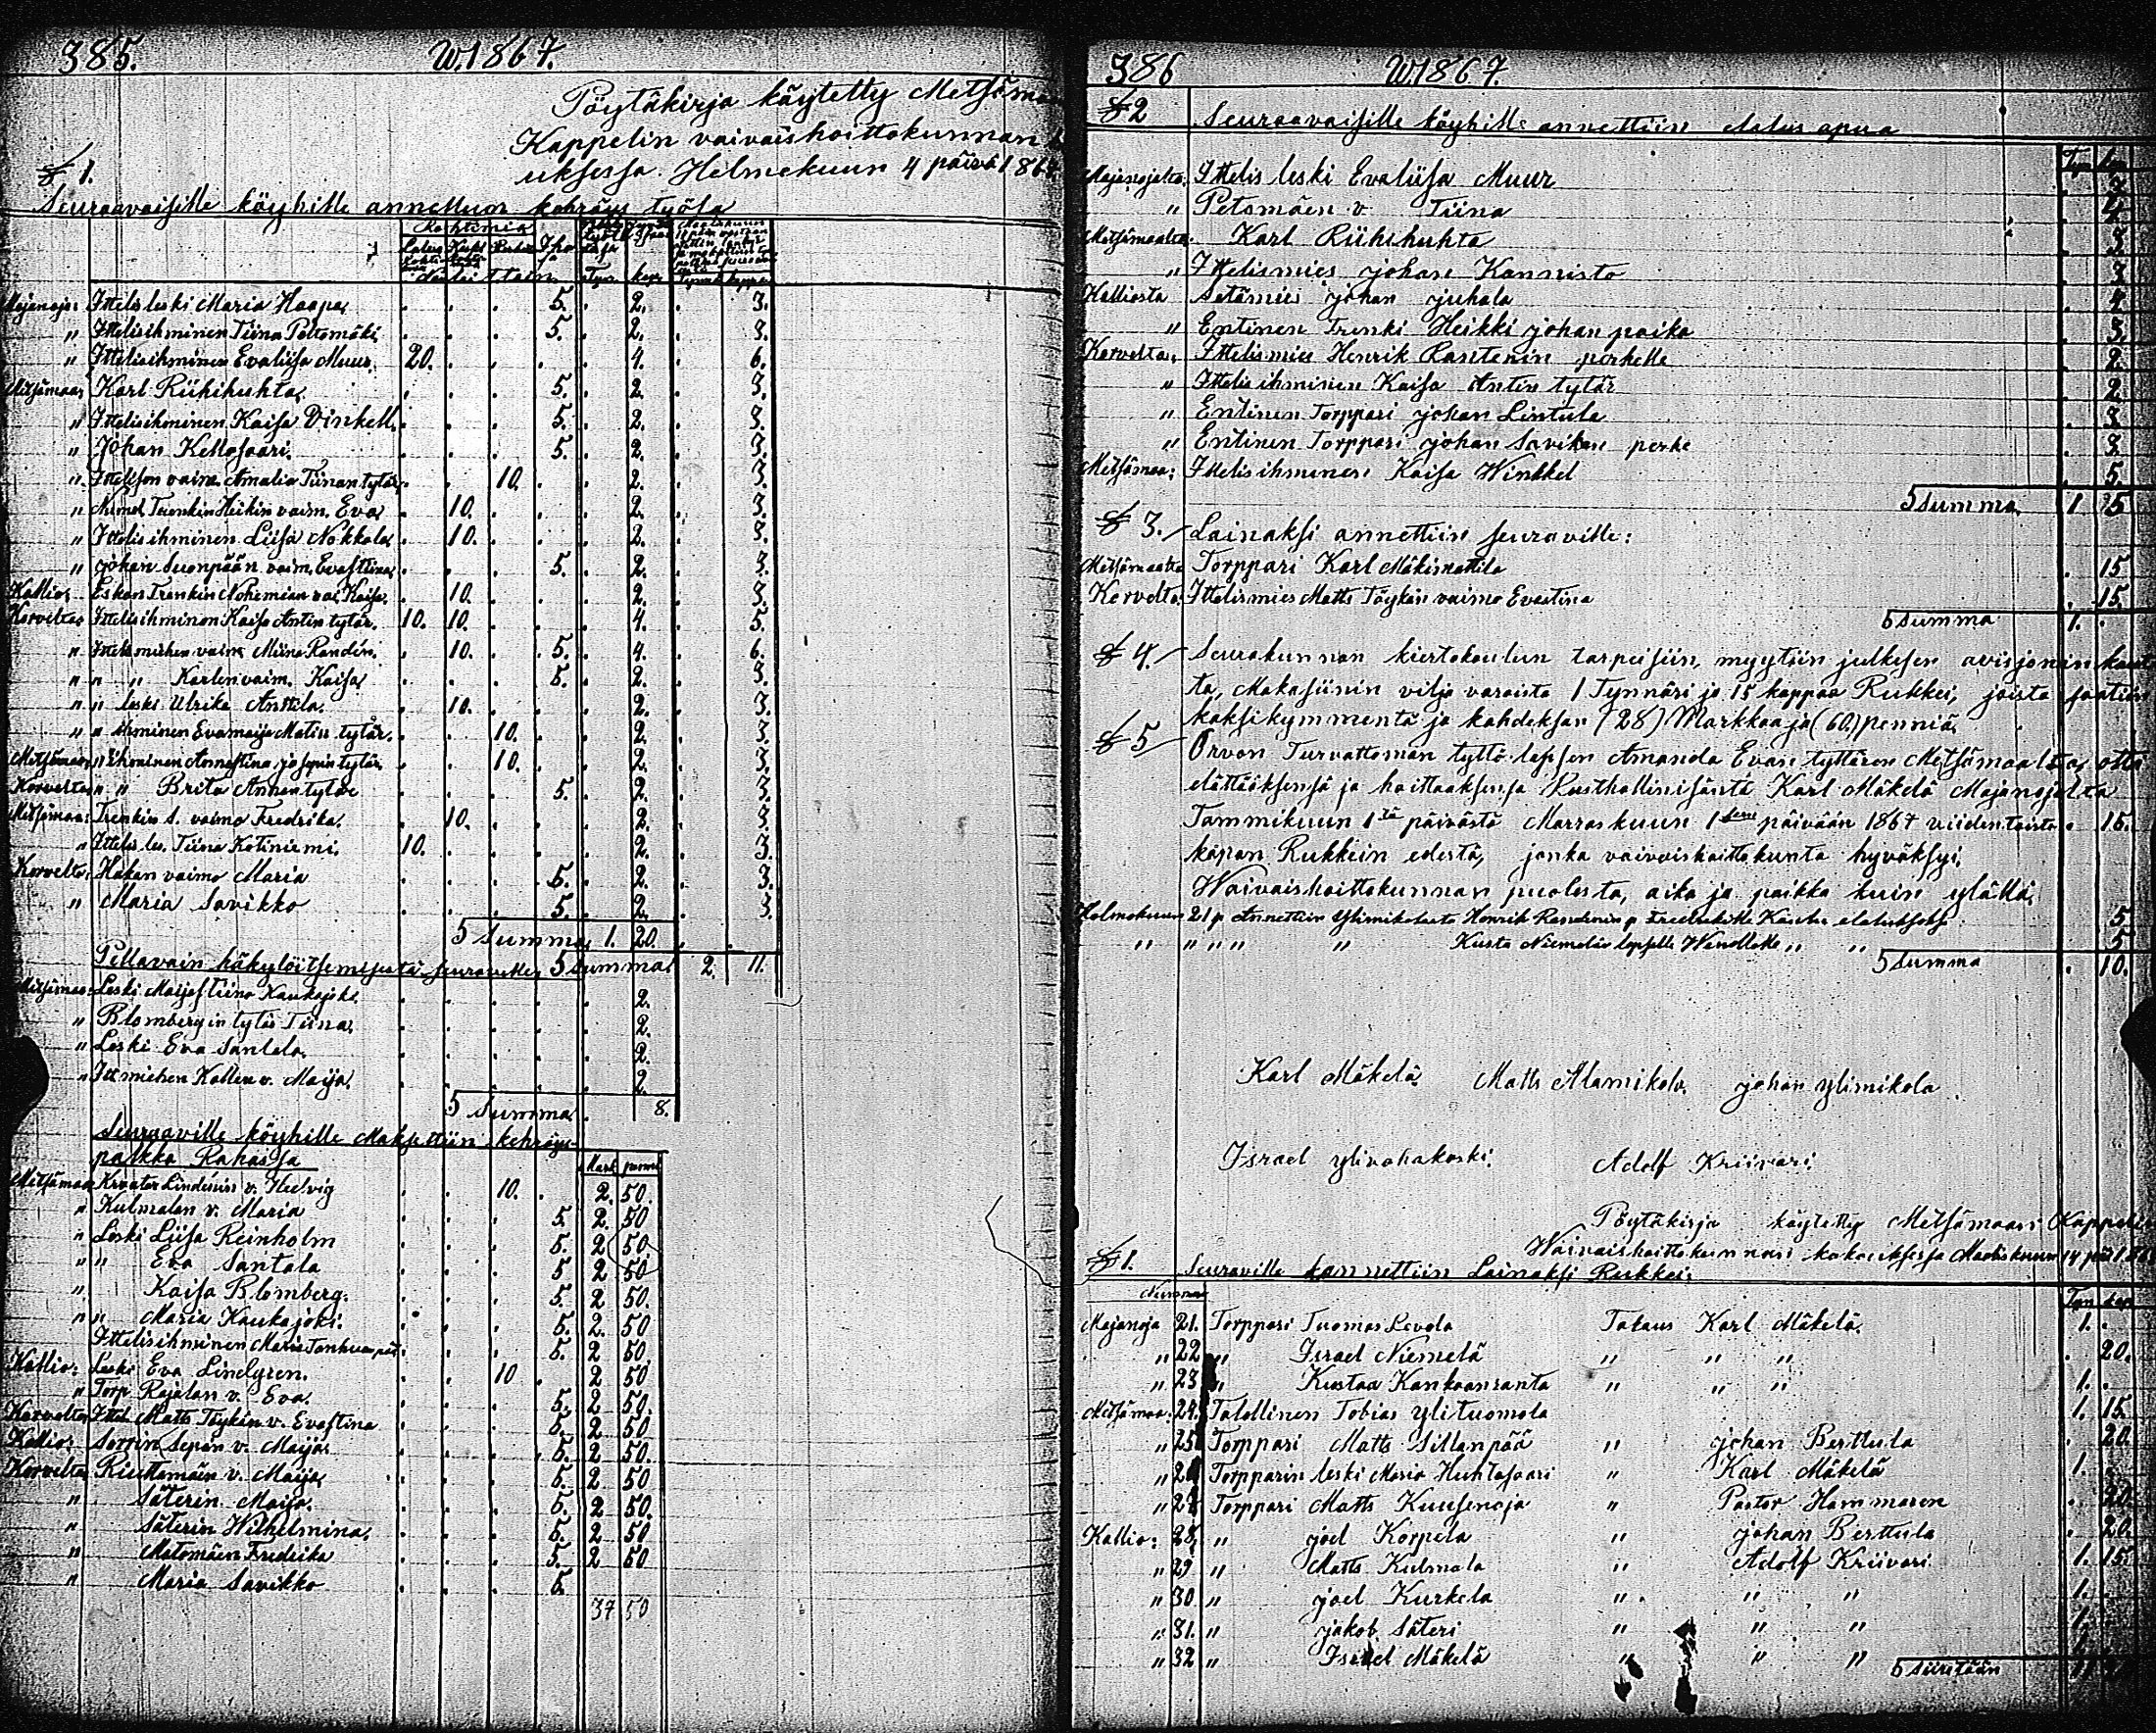 385. W.1867.
Pöytäkirja käytetty Metsäma
Kappelin vaivaishoittokunnan
uksessa. Helmekuun 4 päivä 186
§ 1.
Seuraavaisille köyhille annettuon kehräys työtä
Majanoja: Ittelis leski Maria Haapa. . . . 5. . 2. . 3.
" Ittelisihminen Tiina Petomäki, . . . 5. . 2. . 3.
" Ittelisihminen Evaliisa Muur. 20. . . . . 4. . 6.
Metsämaa; Karl Riihihuhta, . . . 5. . 2. . 3.
" Ittelisihminen Kaisa Vinkell. . . . 5. . 2. . 3.
" Johan Kellosaari. . . . 5. . 2. . 3.
" Ittellson vaimo Amalia Tiinan tytär . . 10. . . 2. . 3.
" Trenkin Heikin vaim. Eva . 10. . . . 2. . 3.
" Ittelisihminen Liisa Nokkala . 10. . . . 2. . 3.
" johan Suonpään vaim. Evastiina . . . 5. . 2. . 3.
Kallio; Eskon Trenkin Nohemian vai. Kaisa. . 10. . . . 2. . 3.
Korvelta Ittelisihminen Kaisa Antin tytär. 10. 10. . . . 4. . 5.
" Ittelismiehen vaim. Miina Randin. . 10. . 5. . 4. . 6.
" " " Karlen vaim. Kaisa . . . 5. . 2. . 3.
" " leski Ulrika Anttila. . 10. . . . 2. . 3.
" " ihminen Evamaija Matin tytär. . . 10. . . 2. . 3.
Metsämaa " ihminen Annastiina josepin tytär . . 10. . . 2. . 3.
Korvelta " " Brita Annan tytär . . . 5. . 2. . 3.
Metsämaa: Trenkin s. vaimo Fredrika. . 10. . . . 2. . 3.
" Ittelis les. Tiina Kotiniemi. 10. . . . . 2. . 3.
Korvelta; Hakan vaimo Maria . . . 5. . 2. . 3.
" Maria Savikko . . . 5. . 2. . 3.
5 Summa 1. 20. . .
Pellavain häkylöitsemisestä seuraaville; 5 summa 2. 11.
Metsämaa: Leski Maijastiina Kaukajoki. . . . . . 2.
" Blombergin tytär Tiina. . . . . . 2.
" Leski Eva Santala. . . . . . 2.
" Itt miehen Kallen v. Maija. . . . . . 2.
5 Summa . 8.
Seuraaville köyhille Maksettiin kehräys-
palkka Rahassa
Mark penni
Metsämaa Kraatar Lindénin v. Hedvig . . 10. . 2. 50.
" Kulmalan v. Maria . . . 5. 2. 50
" Leski Liisa Reinholm . . . 5. 2 50
" " Eva Santala . . . 5 2 50
" Kaisa Blomberg. . . . 5. 2 50.
" " Maria Kaukajoki. . . . 5. 2. 50
Ittelisihminen Maria Tanhuanpää . . . 5. 2 50
Kallio: Leski Eva Lindgren. . . 10 . 2 50
" Torp Rajalan v. Eva. . . . 5. 2 50.
Korvelta Ittel Matts Töykän v. Evastina . . . 5. 2 50
Kallio; Sorrin Sepän v. Maija . . . 5. 2 50.
Korvelta Riuttamäen v. Maija . . . 5. 2 50
" Säterin Maija. . . . 5. 2 50.
" Säterin Wilhelmina. . . . 5. 2 50
" Matomäen Fredrika . . . 5. 2 50
" Maria Savikko . . . 5.
37 50
386 W.1867.
§ 2 Seuraavaisille köyhille annettiin elatus apua
Majanojalta: Ittelis leski Evaliisa Muur
" Petomäen v. Tiina
Metsämaalta Karl Riihihuhta
" Ittelismies johan Kannisto
Kalliosta Sotamies johan juhala
" Entinen Trenki Heikki johan poika
Korvelta, Ittelismies Henrik Rantenin perhelle 2.
" Ittelis ihminen Kaisa Antin tytär 2.
" Entinen Torppari johan Lintula 3
" Entinen Torppari johan Savikon perhe 3
Metsämaa; Ittelis ihminen Kaisa Winkkel 5.
5 Summa. 1 5
§ 3. Lainaksi annettiin seuraville:
Metsämaalta Torppari Karl Mäkimattila 15
Korvelta: Ittelismies Matts Töykän vaimo Evastina 15.
6 Summa 1. .
§ 4. Seurakunnan kiertokoulun tarpeisiin, myytiin julkesen avisjonin kau
ta, Makasiinin vilja varoista 1 Tynnäri ja 15 kappaa Rukkei, joista saatiin
kaksikymmentä ja kahdeksan (28) Markkaa ja (60.) penniä.
§ 5 Orvon Turvattoman tyttö-lapsen Amanda Evan tyttären Metsämaalta, otta
elättääksensä ja hoittaaksensa Rusthollinisäntä Karl Mäkelä Majanojalta
Tammikuun 1tä päivästä Marraskuun 1seen päivään 1867 viidentoista . 15.
kapan Rukkein edestä, jonka vaivaishoittokunta hyväksyi.
Waivaishoittokunnan puolesta, aika ja paikka kuin ylällä.
Holmokuun 21 p Annettiin Ylimikolasta Henrik Randenin p. 5
" " " " " Kusta Niemelän lapselle " " 5
5 Summa . 10.
Karl Mäkelä. Matts Alamikola. johan ylimikola.
Israel ylivahakoski. Adolf Kriivari.
Pöytäkirja käytetty Metsämaan Kappeli
Waivaishoittokunnan kokouksessa Maaliskuun 14 päi 186
§ 1. Seuraville annettiin Lainaksi Rukkei;
Numro
Majanoja 21. Torppari Tuomas Levola Takaus Karl Mäkelä. 1. .
" 22 " Israel Niemelä " " " . 20.
" 23 " Kustaa Kankaanranta " " " 1. .
Metsämaa: 24. Talollinen Tobias ylituomola 1. 15.
" 25 Torppari Matts Sillanpää " johan Berttula . 20.
" 26 Torpparin leski Maria Huhtasaari " Karl Mäkelä 1. .
" 27 Torppari Matts Kuusenoja " Pastor Hammaren . 20.
Kallio: 28. " joel Korpela " johan Berttula . 20.
" 29 " Matts Kulmala " Adolf Kriivari 1. 15.
" 30 " joel Kurkela " " " 1. .
" 31. " jakob. Säteri " " " 1. .
" 32 " Israel Mäkelä " " "
6 siirretään